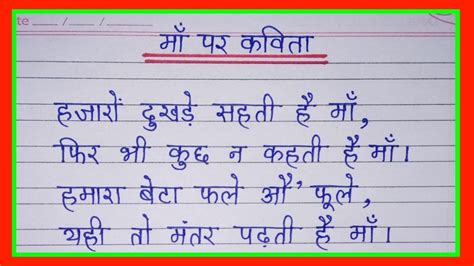 te __/__/__
माँ पर कविता
हजारों दुखड़े सहती है माँ,
फिर भी कुछ न कहती है माँ।
हमारा बेटा फले औ' फूले,
यही तो मंतर पढ़ती है माँ।